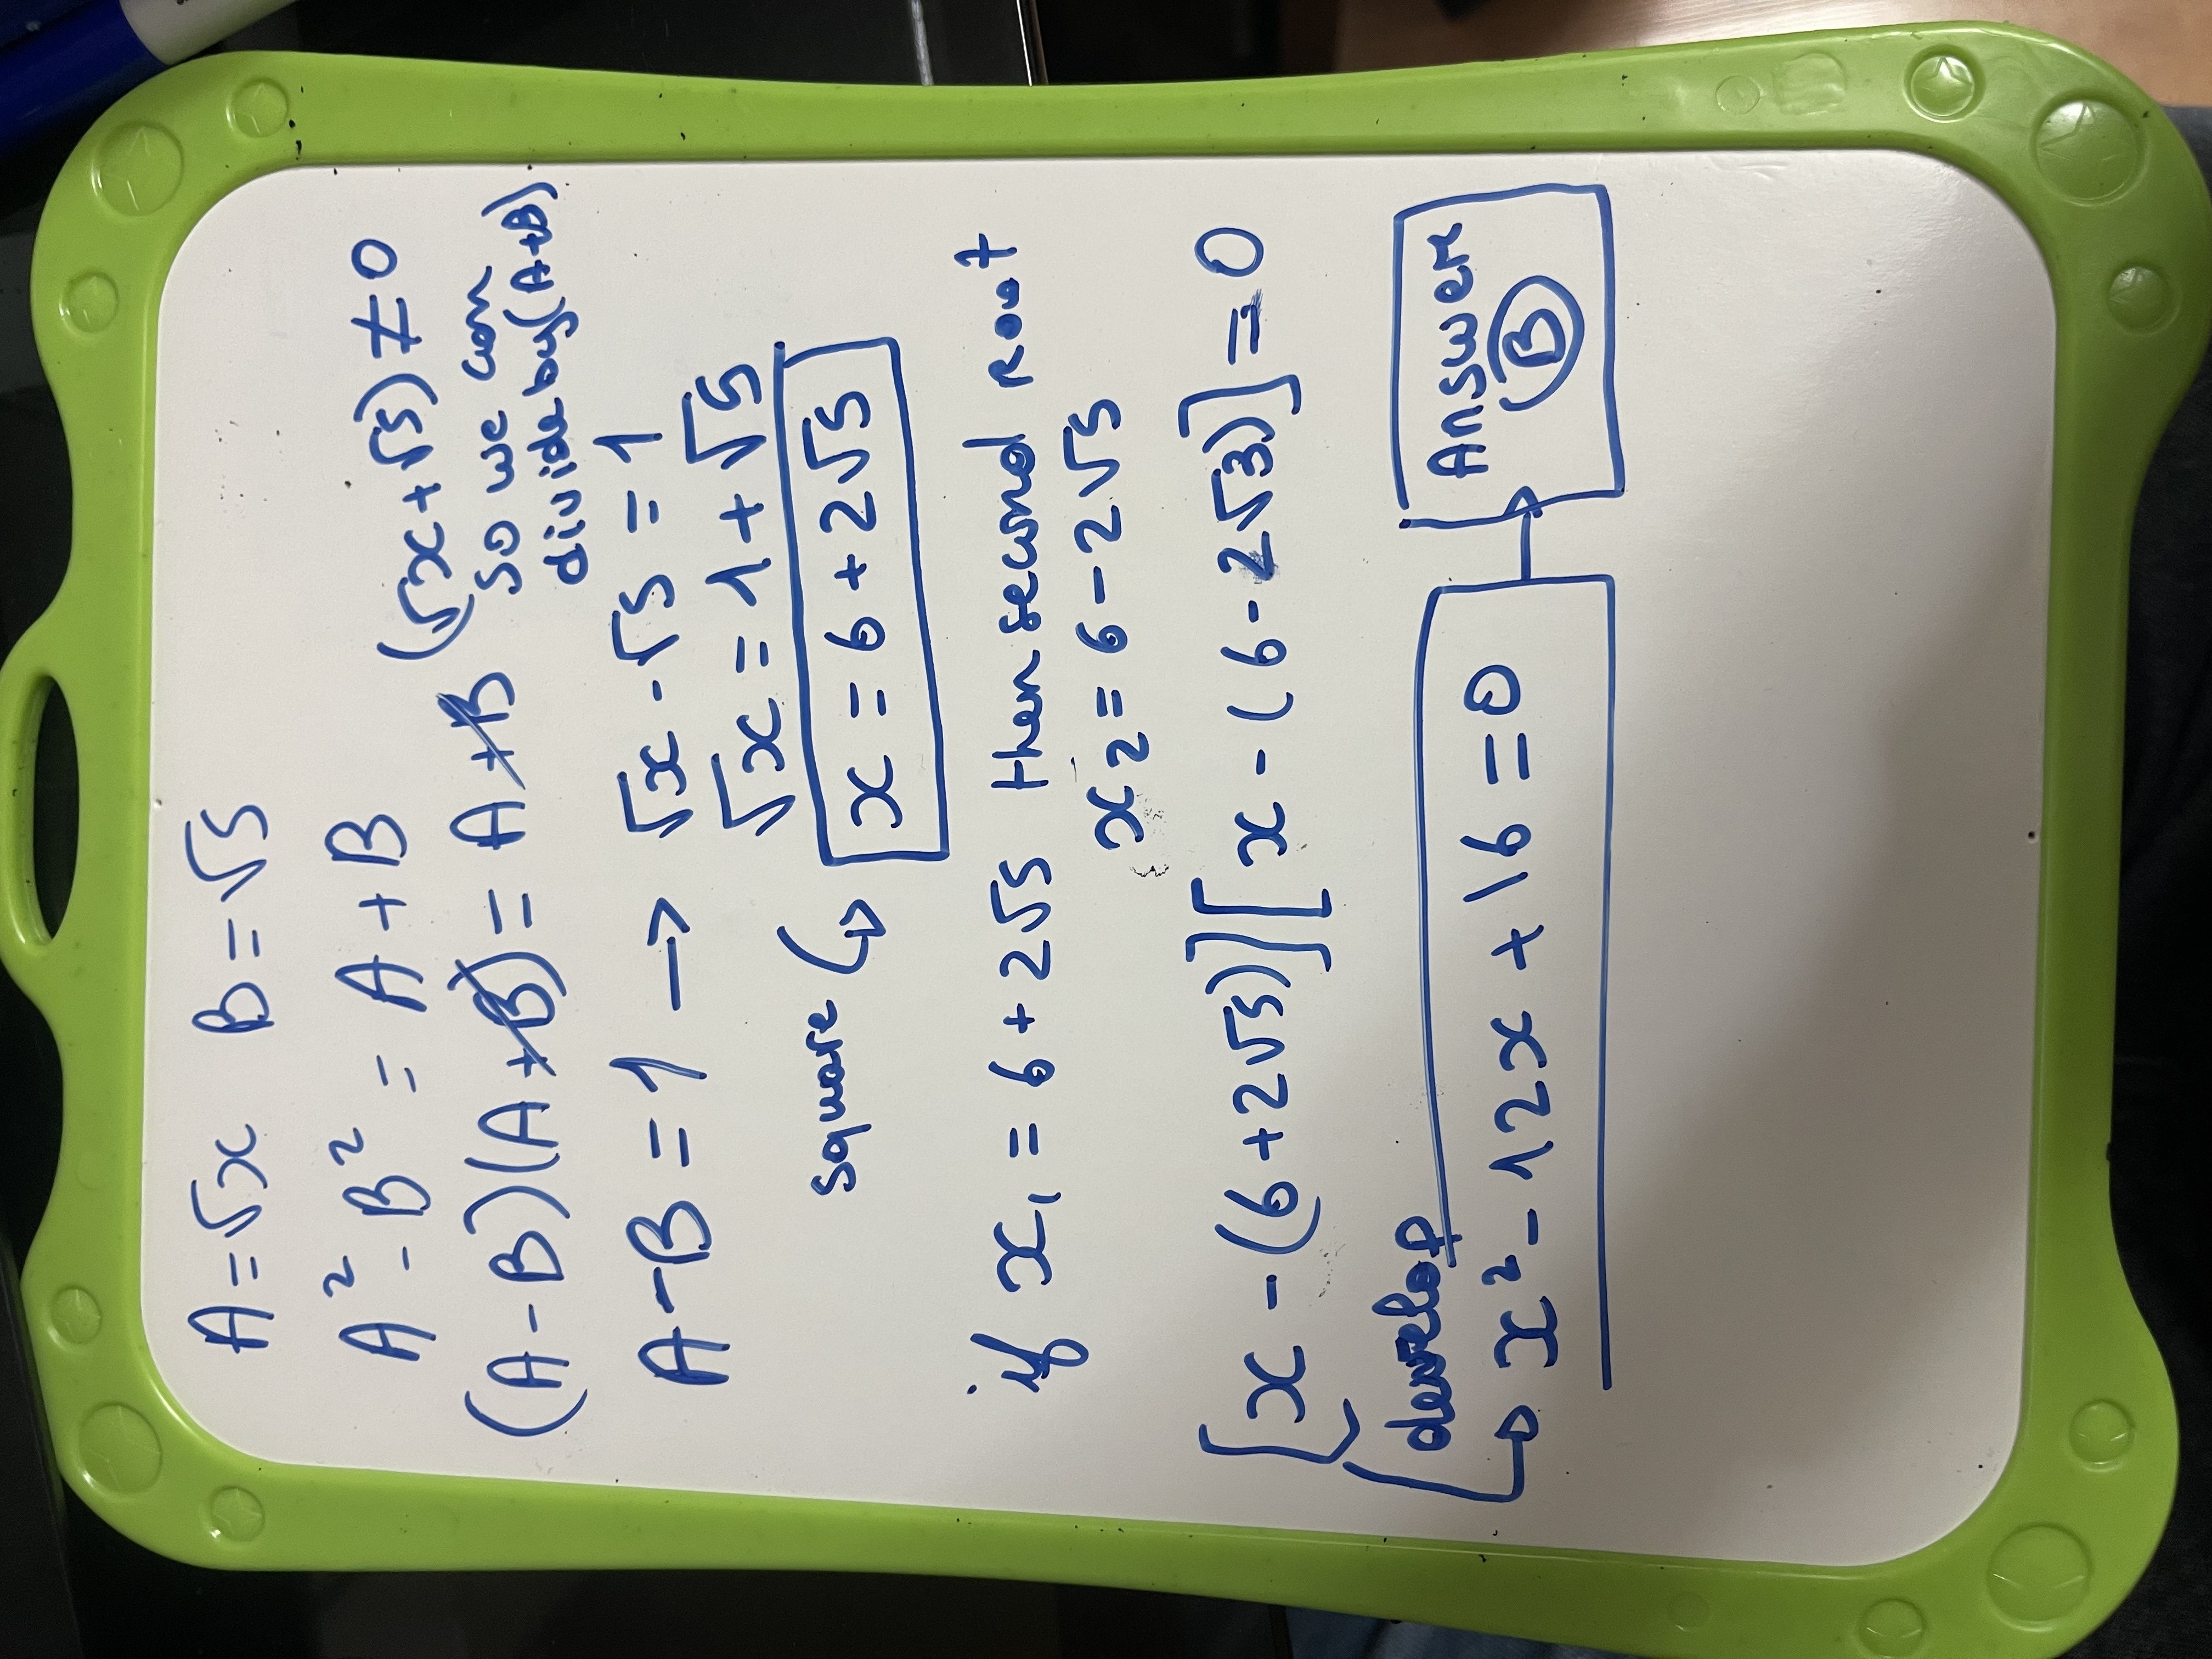 A = √x B = √5
A² - B² = A + B
(A - B)(A + B) = A + B (√x + √5) ≠ 0
so we can
divide by (A+B)
A - B = 1 → √x - √5 = 1
√x = 1 + √5
square ↳ x = 6 + 2√5
if x₁ = 6 + 2√5 then second root
x₂ = 6 - 2√5
[x - (6 + 2√5)][x - (6 - 2√3)] = 0
develop
↳ x² - 12x + 16 = 0 → Answer
B